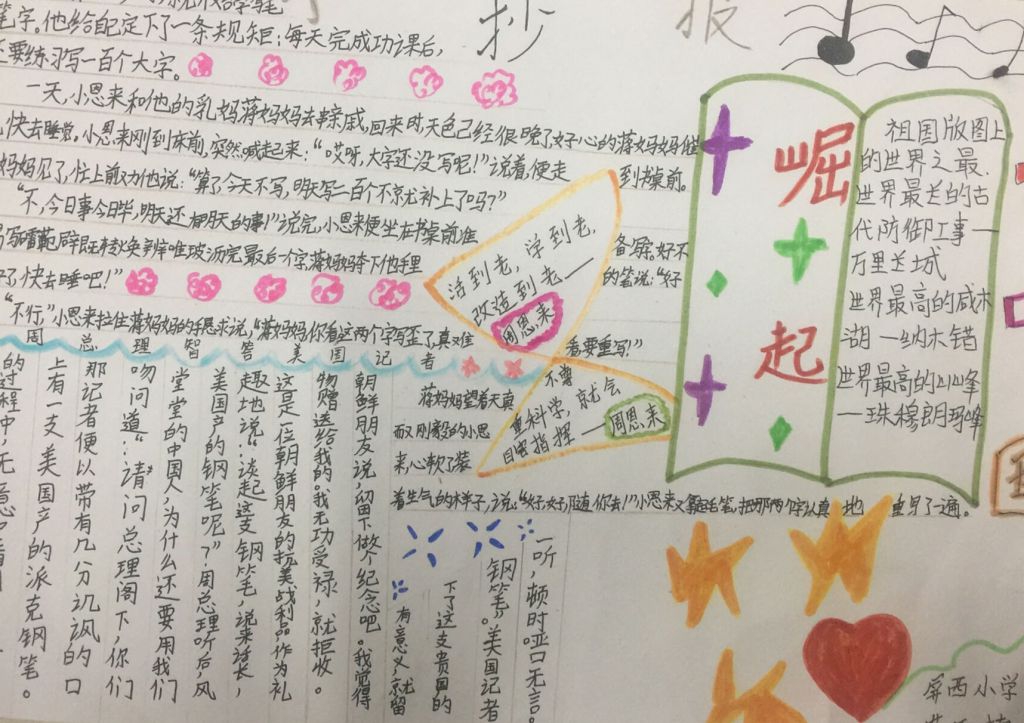 抄 报
笔字。他给自己定下了一条规矩:每天完成功课后,
还要练习写一百个大字。
一天,小恩来和他的乳妈蒋妈妈去亲戚,回来时天色已经很晚了好心的蒋妈妈催
快去睡觉。小恩来刚到床前,突然喊起来:“哎呀,大字还没写呢!”说着,便走 到书桌前。
妈妈见了,忙上前劝他说:“算了,今天不写,明天写二百个不就补上了吗?”
“不,今日事今日毕,明天还有明天的事!”说完,小恩来便坐在书桌前准 备写。好不
完最后一个字,蒋妈妈夺下他手里 的笔说:“好
了,快去睡吧!”
“不行,”小恩来拉住蒋妈妈的手恳求说,“蒋妈妈你看这两个字写歪了,真以佳 看要重写!”
蒋妈妈望着天真
而又刚毅的小恩
来心软了装
着生气的样子,说:“好,好,随你去!”小恩来又拿起毛笔,把那两个字认真地 重写了一遍。
活到老,学到老,
改造到老——
周恩来
不尊
重科学,就会
瞎指挥——
周恩来
崛起
祖国版图上
的世界之最.
世界最长的古
代防御工事—
万里长城
世界最高的咸水
湖—纳木错
世界最高的山峰
—珠穆朗玛峰
周总理智答美国记者
上有一支美国产的派克钢笔。
那记者便以带有几分讥讽的口
吻问道:“请问总理阁下,你们
堂堂的中国人,为什么还要用我们
美国产的钢笔呢?”周总理听后,风
趣地说:“谈起这支钢笔,说来话长,
这是一位朝鲜朋友的抗美战利品作为礼
物赠送给我的。我无功受禄,就拒收。
朝鲜朋友说,留下做个纪念吧。我觉得
有意义,就留
下了这支贵国的
钢笔”。美国记者
一听,顿时哑口无言。
屏西小学